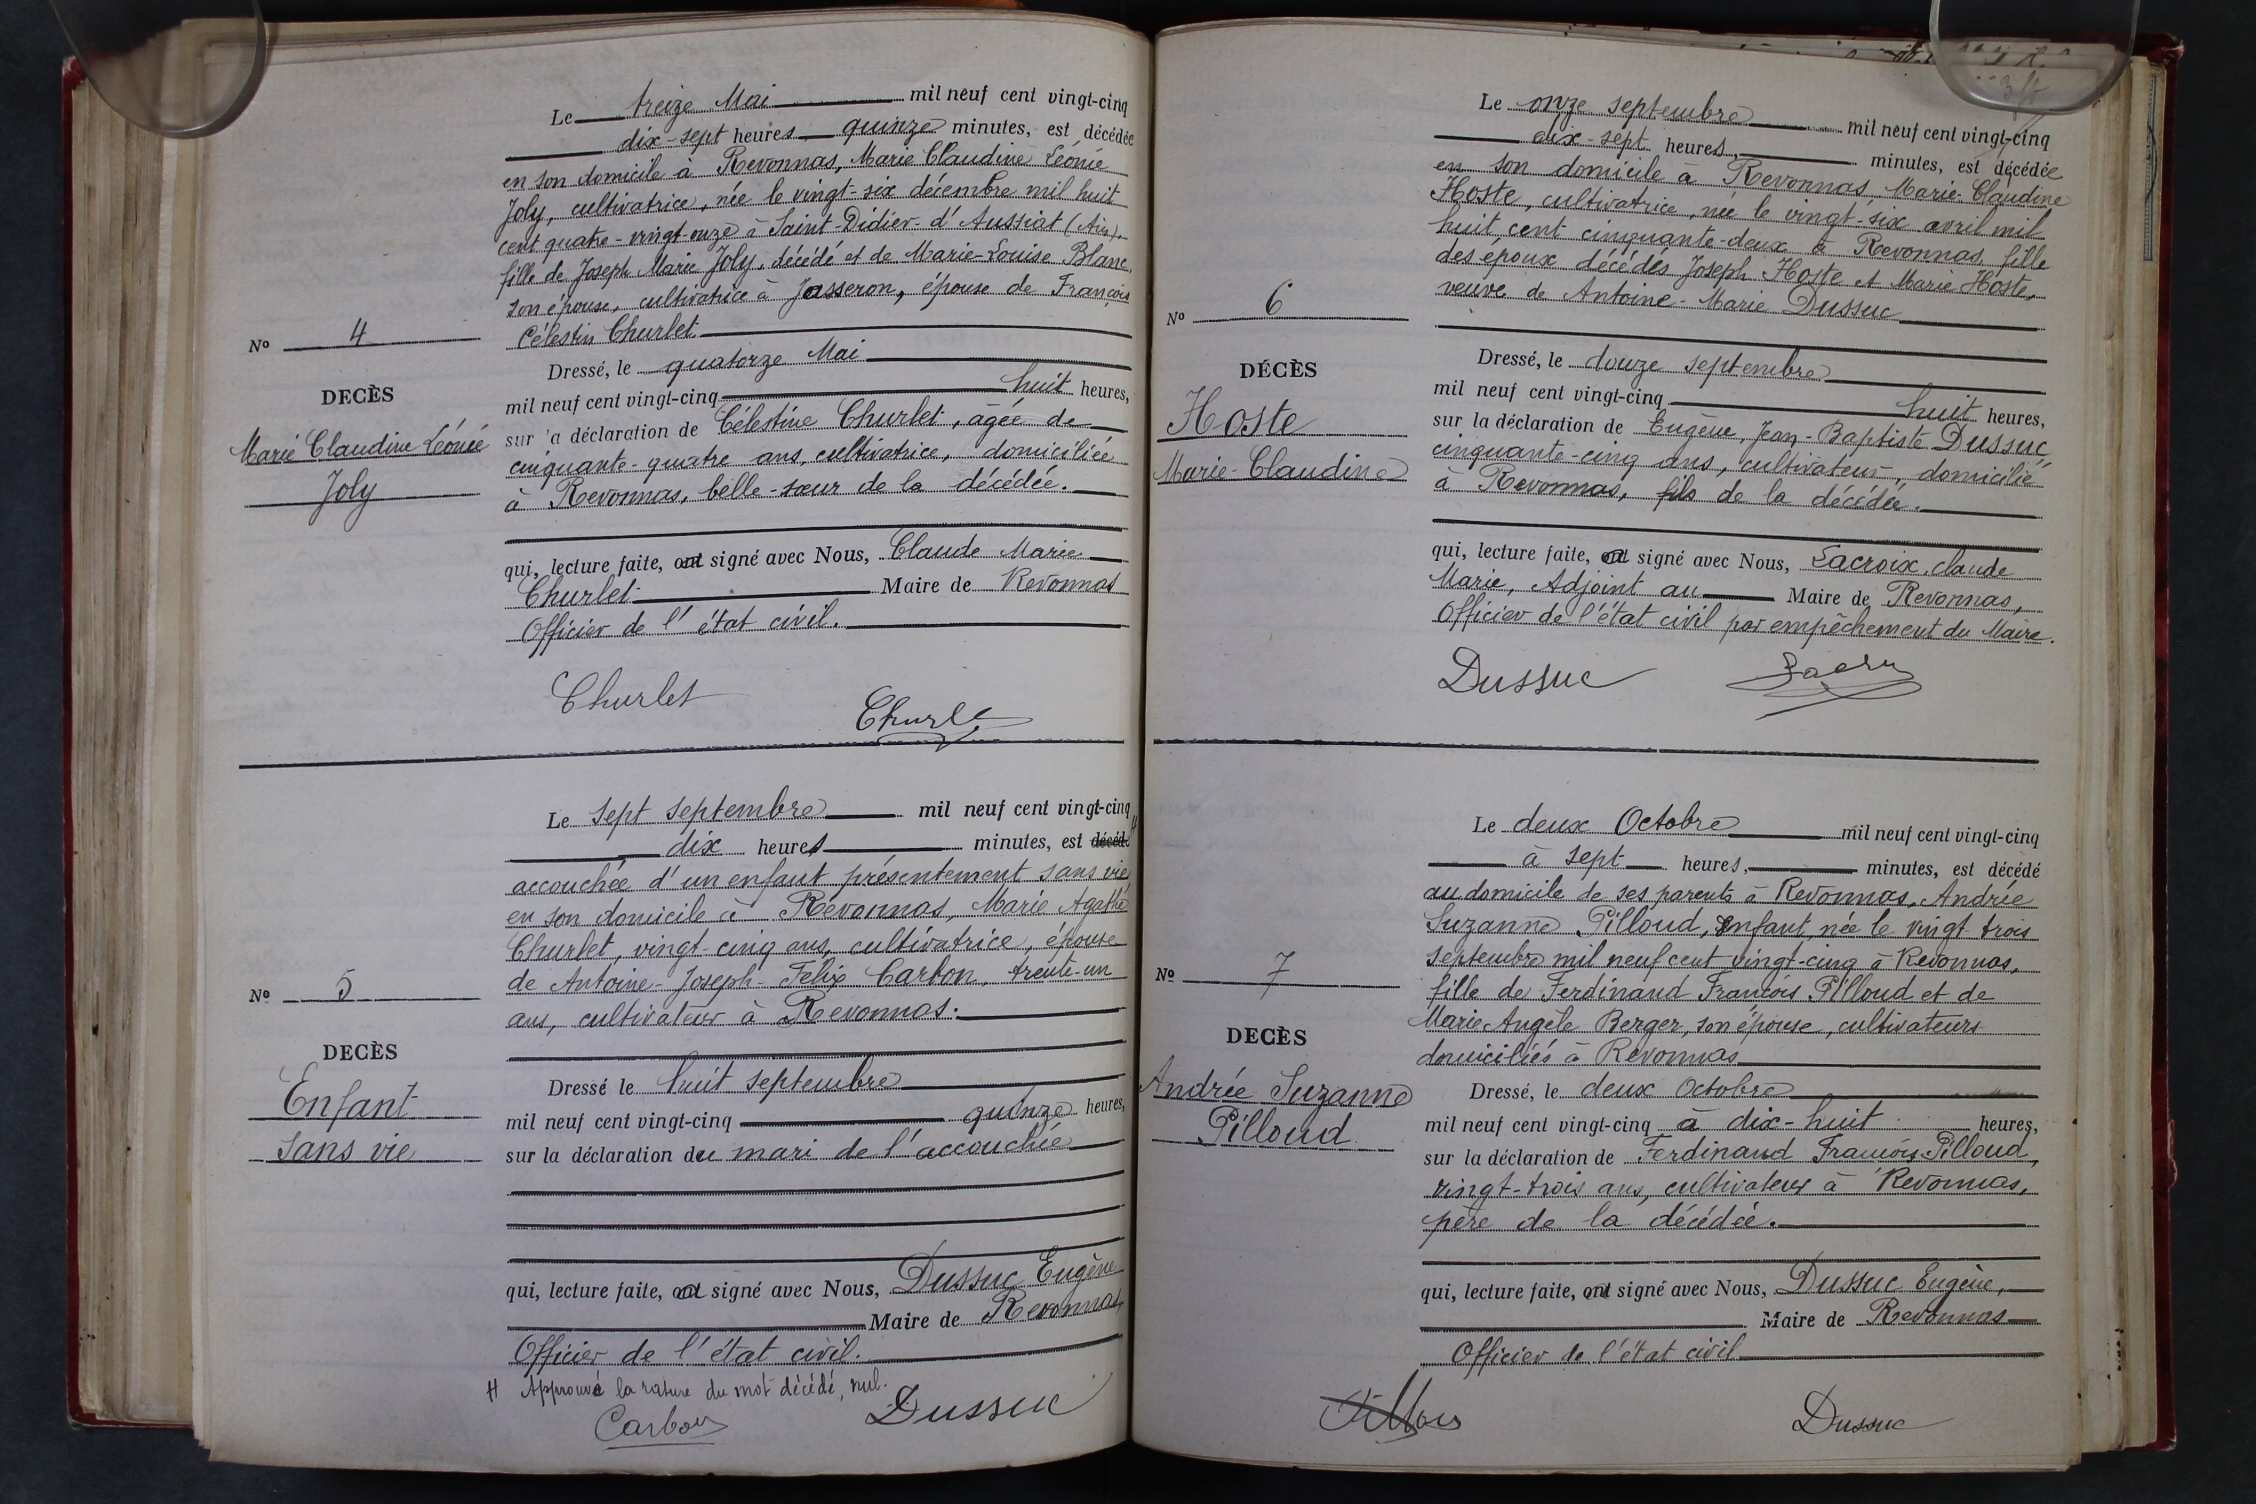 Le treize Mai mil neuf cent vingt-cinq
dix-sept heures quinze minutes, est décédée
en son domicile à Revonnas, Marie Claudine Léonie
Joly, cultivatrice, née le vingt-six décembre mil huit
cent quatre-vingt-onze à Saint-Didier-d'Aussiat (Ain),
fille de Joseph Marie Joly, décédé et de Marie-Louise Blanc,
son épouse, cultivatrice à Jasseron, épouse de François
Célestin Churlet
Nº 4
DECÈS
Marie Claudine Léonie
Joly
Dressé, le quatorze Mai
mil neuf cent vingt-cinq huit heures,
sur la déclaration de Célestine Churlet, agée de
cinquante-quatre ans, cultivatrice, domiciliée
à Revonnas, belle-sœur de la décédée.
qui, lecture faite, a signé avec Nous, Claude Marie
Churlet Maire de Revonnas
Officier de l'état civil.
Churlet
Churlet
Le sept septembre mil neuf cent vingt-cinq
dix heures minutes, est décédé
accouchée d'un enfant présentement sans vie
en son domicile à Revonnas, Marie Agathe
Churlet, vingt-cinq ans, cultivatrice, épouse
de Antoine-Joseph-Félix Carbon, trente-un
ans, cultivateur à Revonnas.
Nº 5
DECÈS
Enfant
sans vie
Dressé le huit septembre
mil neuf cent vingt-cinq quinze heures,
sur la déclaration du mari de l'accouchée
qui, lecture faite, a signé avec Nous, Dussuc Eugène
Maire de Revonnas,
Officier de l'état civil.
H Approuvé la rature du mot décédé, nul.
Carbon
Dussuc
Le onze septembre mil neuf cent vingt-cinq
dix-sept heures, minutes, est décédée
en son domicile à Revonnas Marie-Claudine
Hoste, cultivatrice, née le vingt-six avril mil
huit cent cinquante-deux à Revonnas, fille
des époux décédés Joseph Hoste et Marie Hoste,
veuve de Antoine-Marie Dussuc
Nº 6
DÉCÈS
Hoste
Marie-Claudine
Dressé, le douze septembre
mil neuf cent vingt-cinq huit heures,
sur la déclaration de Eugène, Jean-Baptiste Dussuc
cinquante-cinq ans, cultivateur, domicilié
à Revonnas, fils de la décédée.
qui, lecture faite, a signé avec Nous, Lacroix, Claude
Marie, Adjoint au Maire de Revonnas,
Officier de l'état civil par empêchement du Maire.
Dussuc
Le deux Octobre mil neuf cent vingt-cinq
à sept heures, minutes, est décédé
au domicile de ses parents à Revonnas, Andrée
Suzanne Pilloud, enfant, née le vingt-trois
septembre mil neuf cent vingt-cinq à Revonnas,
fille de Ferdinand François Pilloud et de
Marie Angèle Berger, son épouse, cultivateurs
domiciliés à Revonnas
Nº 7
DECÈS
Andrée Suzanne
Pilloud
Dressé, le deux Octobre
mil neuf cent vingt-cinq à dix-huit heures,
sur la déclaration de Ferdinand François Pilloud,
vingt-trois ans, cultivateur à Revonnas,
père de la décédée.
qui, lecture faite, ont signé avec Nous, Dussuc Eugène,
Maire de Revonnas
Officier de l'état civil
Dussuc